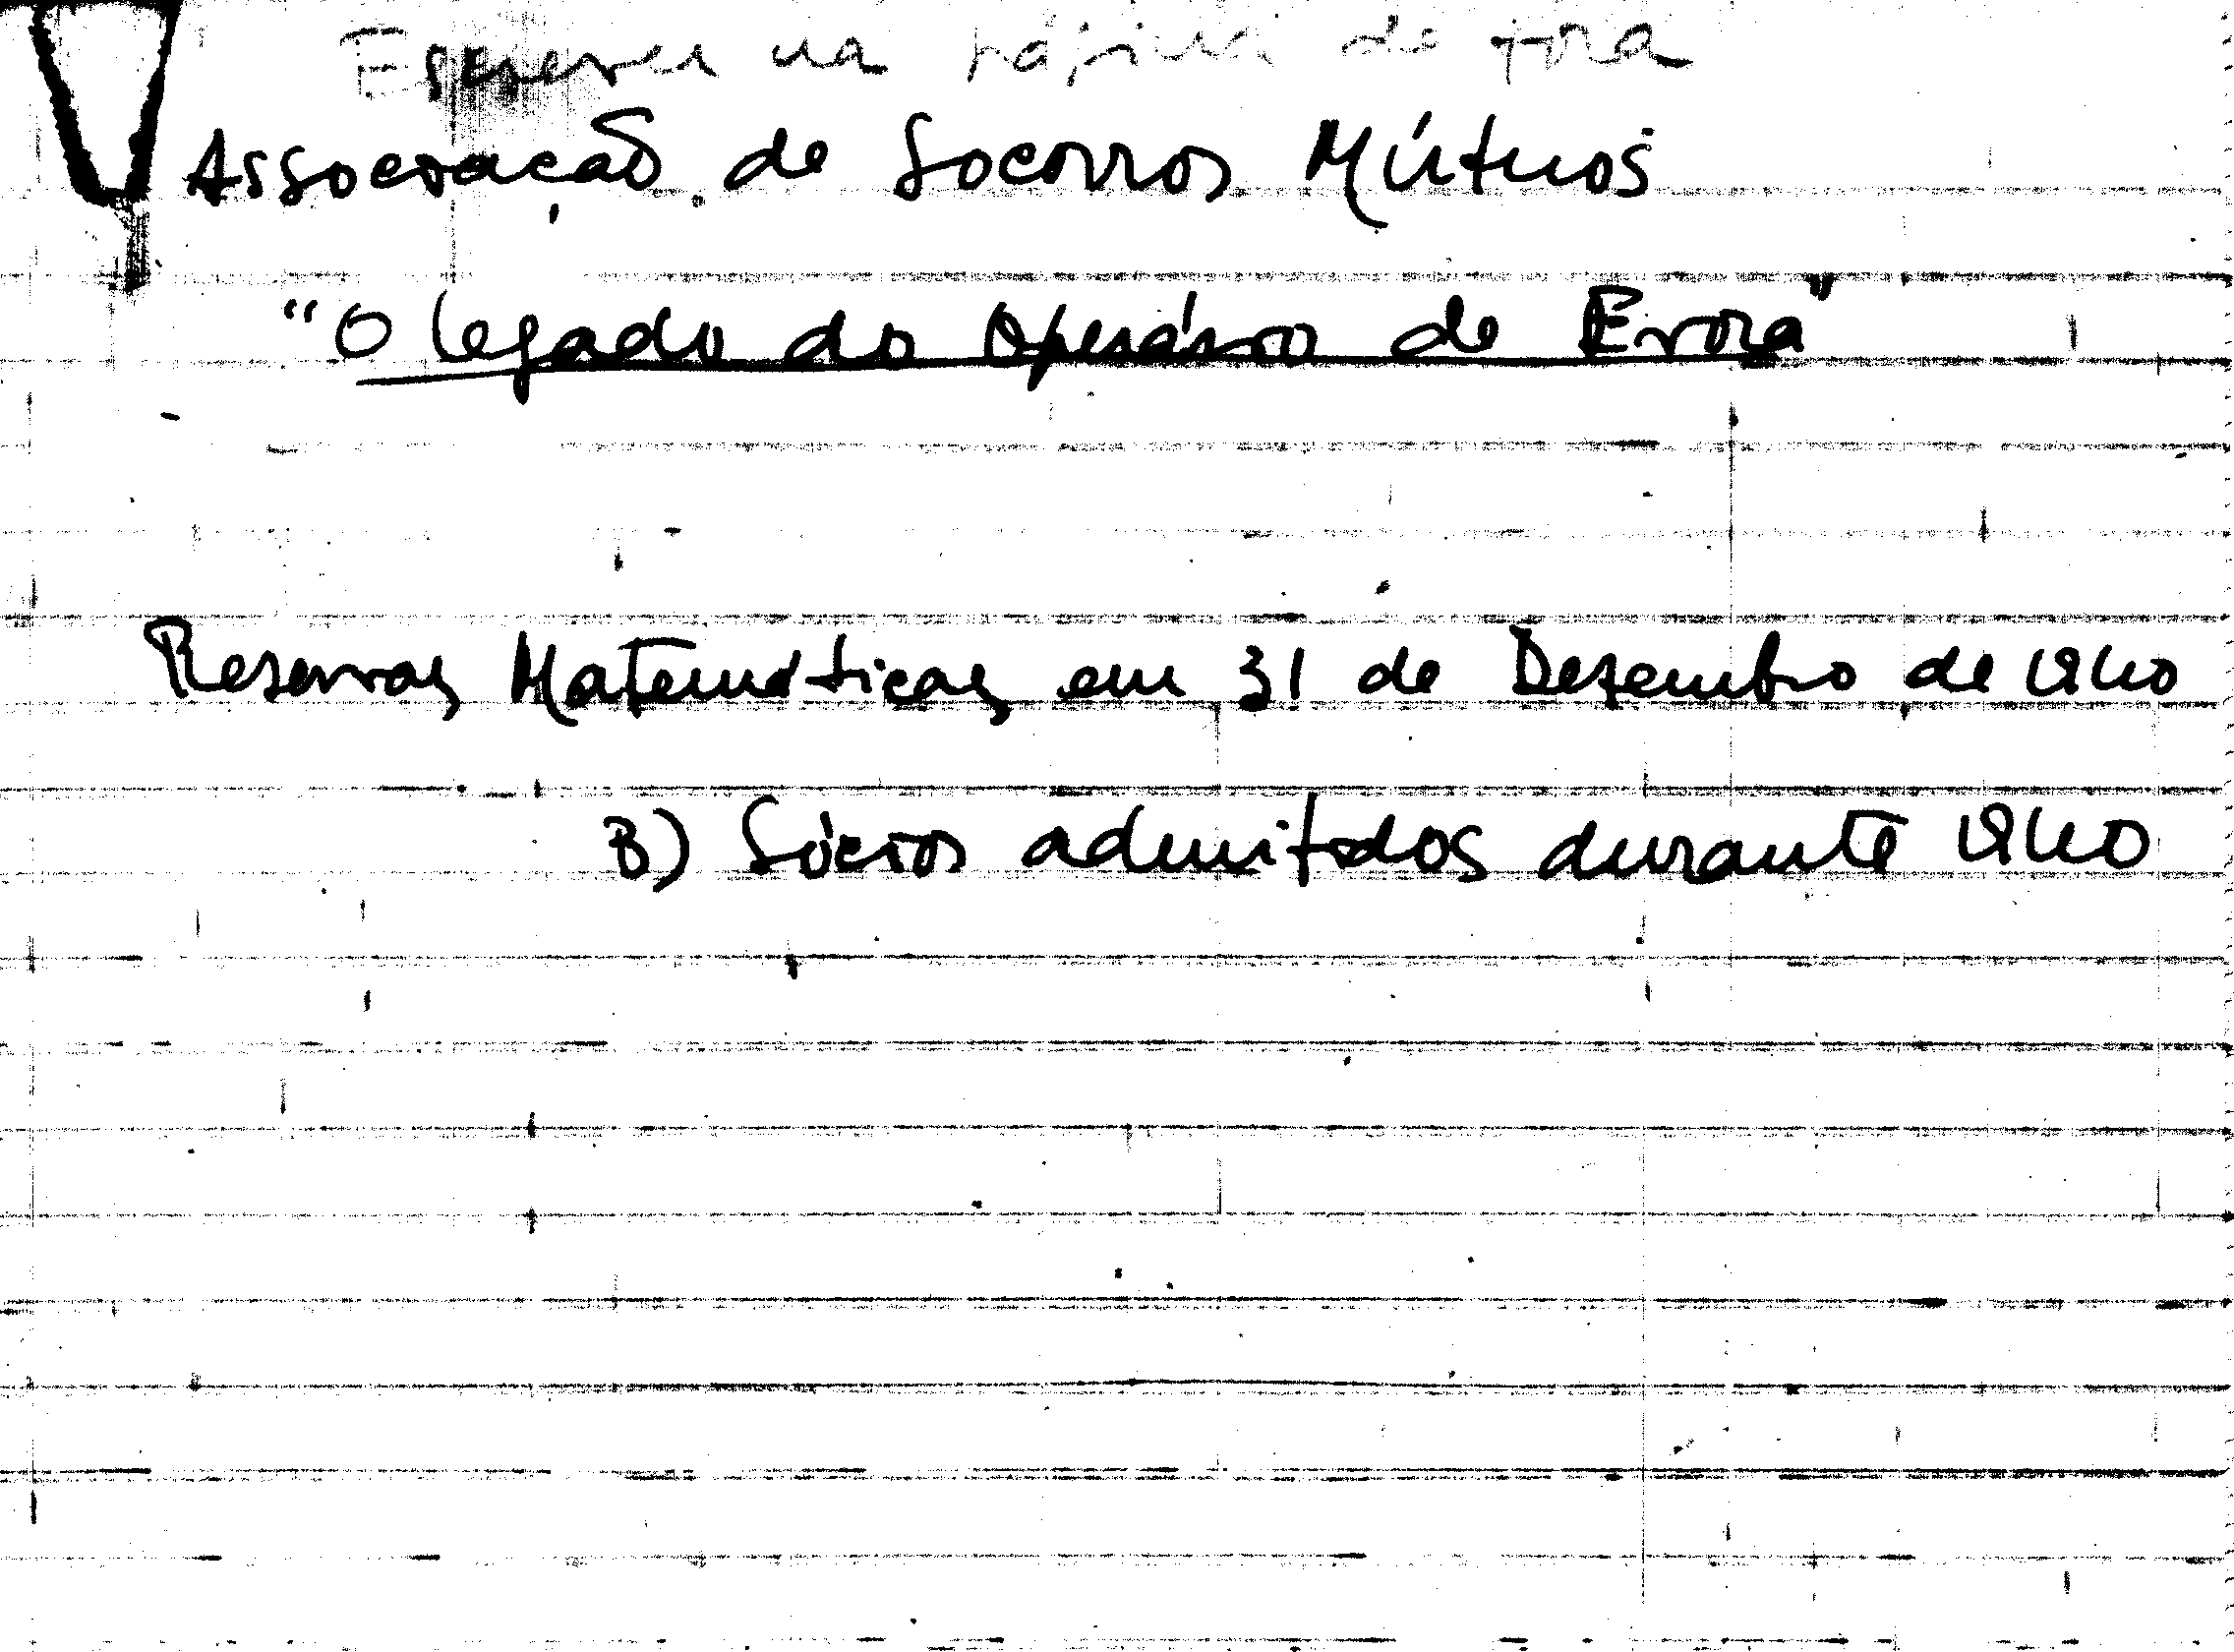 Escrever na página de fora
Associação de Socorros Mútuos
"O Legado do Operário de Evora"
Reservas Matemáticas em 31 de Dezembro de 1940
B) Sócios admitidos durante 1940